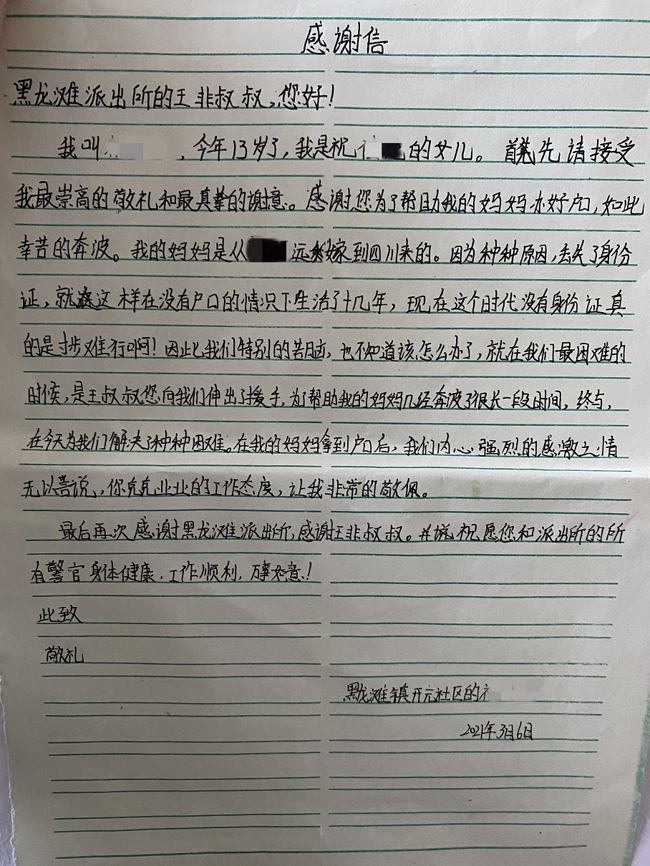 感谢信
黑龙滩派出所的王非叔叔,您好!
我叫 ,今年13岁了,我是祝 的女儿。首先请接受
我最崇高的敬礼和最真挚的谢意。感谢您为了帮助我的妈妈办好户口,如此
幸苦的奔波。我的妈妈是从 远嫁到四川来的。因为种种原因,丢失了身份
证,就这样在没有户口的情况下生活了十几年,现在这个时代没有身份证真
的是寸步难行啊!因此我们特别的苦恼,也不知道该怎么办了,就在我们最困难的
时候,是王叔叔您向我们伸出了援手,为了帮助我的妈妈几经奔波了很长一段时间,终与,
在今天为我们解决了种种困难。在我的妈妈拿到户口后,我们内心强烈的感激之情
无以言说,你兢兢业业的工作态度,让我非常的敬佩。
最后再次感谢黑龙滩派出所,感谢王非叔叔。并 祝愿您和派出所的所
有警官身体健康,工作顺利,万事如意!
此致
敬礼
黑龙滩镇开元社区的
2021年3月6日